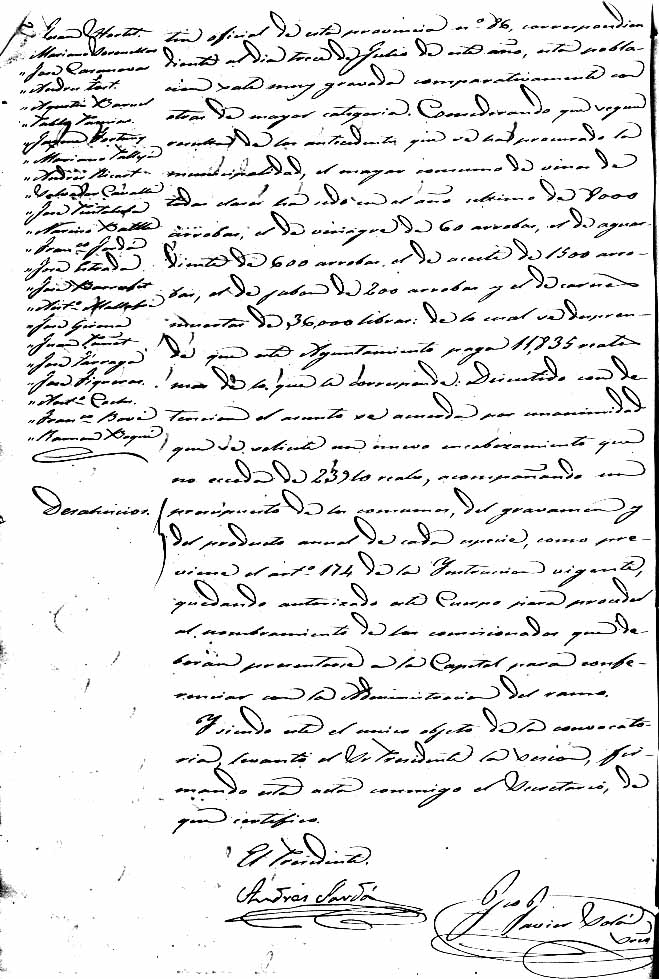 Juan Hortet.
Mariano
José Casanovas
Andrés Fort.
Agustín
Pablo
Jayme
Mariano
Andrés Ricart
Salvador
José
Narciso Batlle
Franco. Jordá
José Estrada
José
Anto.
José Guimá
Juan
José Párraga
José Figueras.
Anto.
Franco. Bové
Ramon Roqué
Desahucios.
tin oficial de esta provincia nº 86, correspondien
diente al dia trece de Julio de este año, esta pobla-
cion sale muy gravada comparativamente con
otras de mayor categoria. Considerando que segun
resulta de los antecedentes que se ha procurado la
municipalidad, el mayor consumo de vinos de
todas clases ha sido en el año ultimo de 8000
arrobas, el de vinagre de 60 arrobas, el de aguar-
diente de 600 arrobas, el de aceite de 1500 arro-
bas, el de jabon de 200 arrobas y el de carnes
muertas de 36,000 libras: de lo cual se despren-
de que este Ayuntamiento paga 11,835 reales
mas de lo que le corresponde. Discutido con de-
tencion el asunto se acuerda por unanimidad
que se solicite un nuevo encabezamiento que
no esceda de reales, acompañando un
presupuesto de los consumos, del gravamen y
del producto anual de cada especie, como pre-
viene el artº. 174 de la Instruccion vigente,
quedando autorizado este Cuerpo para proceder
al nombramiento de los comisionados que de-
berán presentarse a la Capital para confe-
renciar con la Administracion del ramo.
Y siendo este el unico objeto de la convocato-
ria, levantó el Sr. Presidente la sesion, fir-
mando esta acta conmigo el Secretario, de
que certifico.
El Presidente.
Andrés Sardá
Javier Solá
Srio